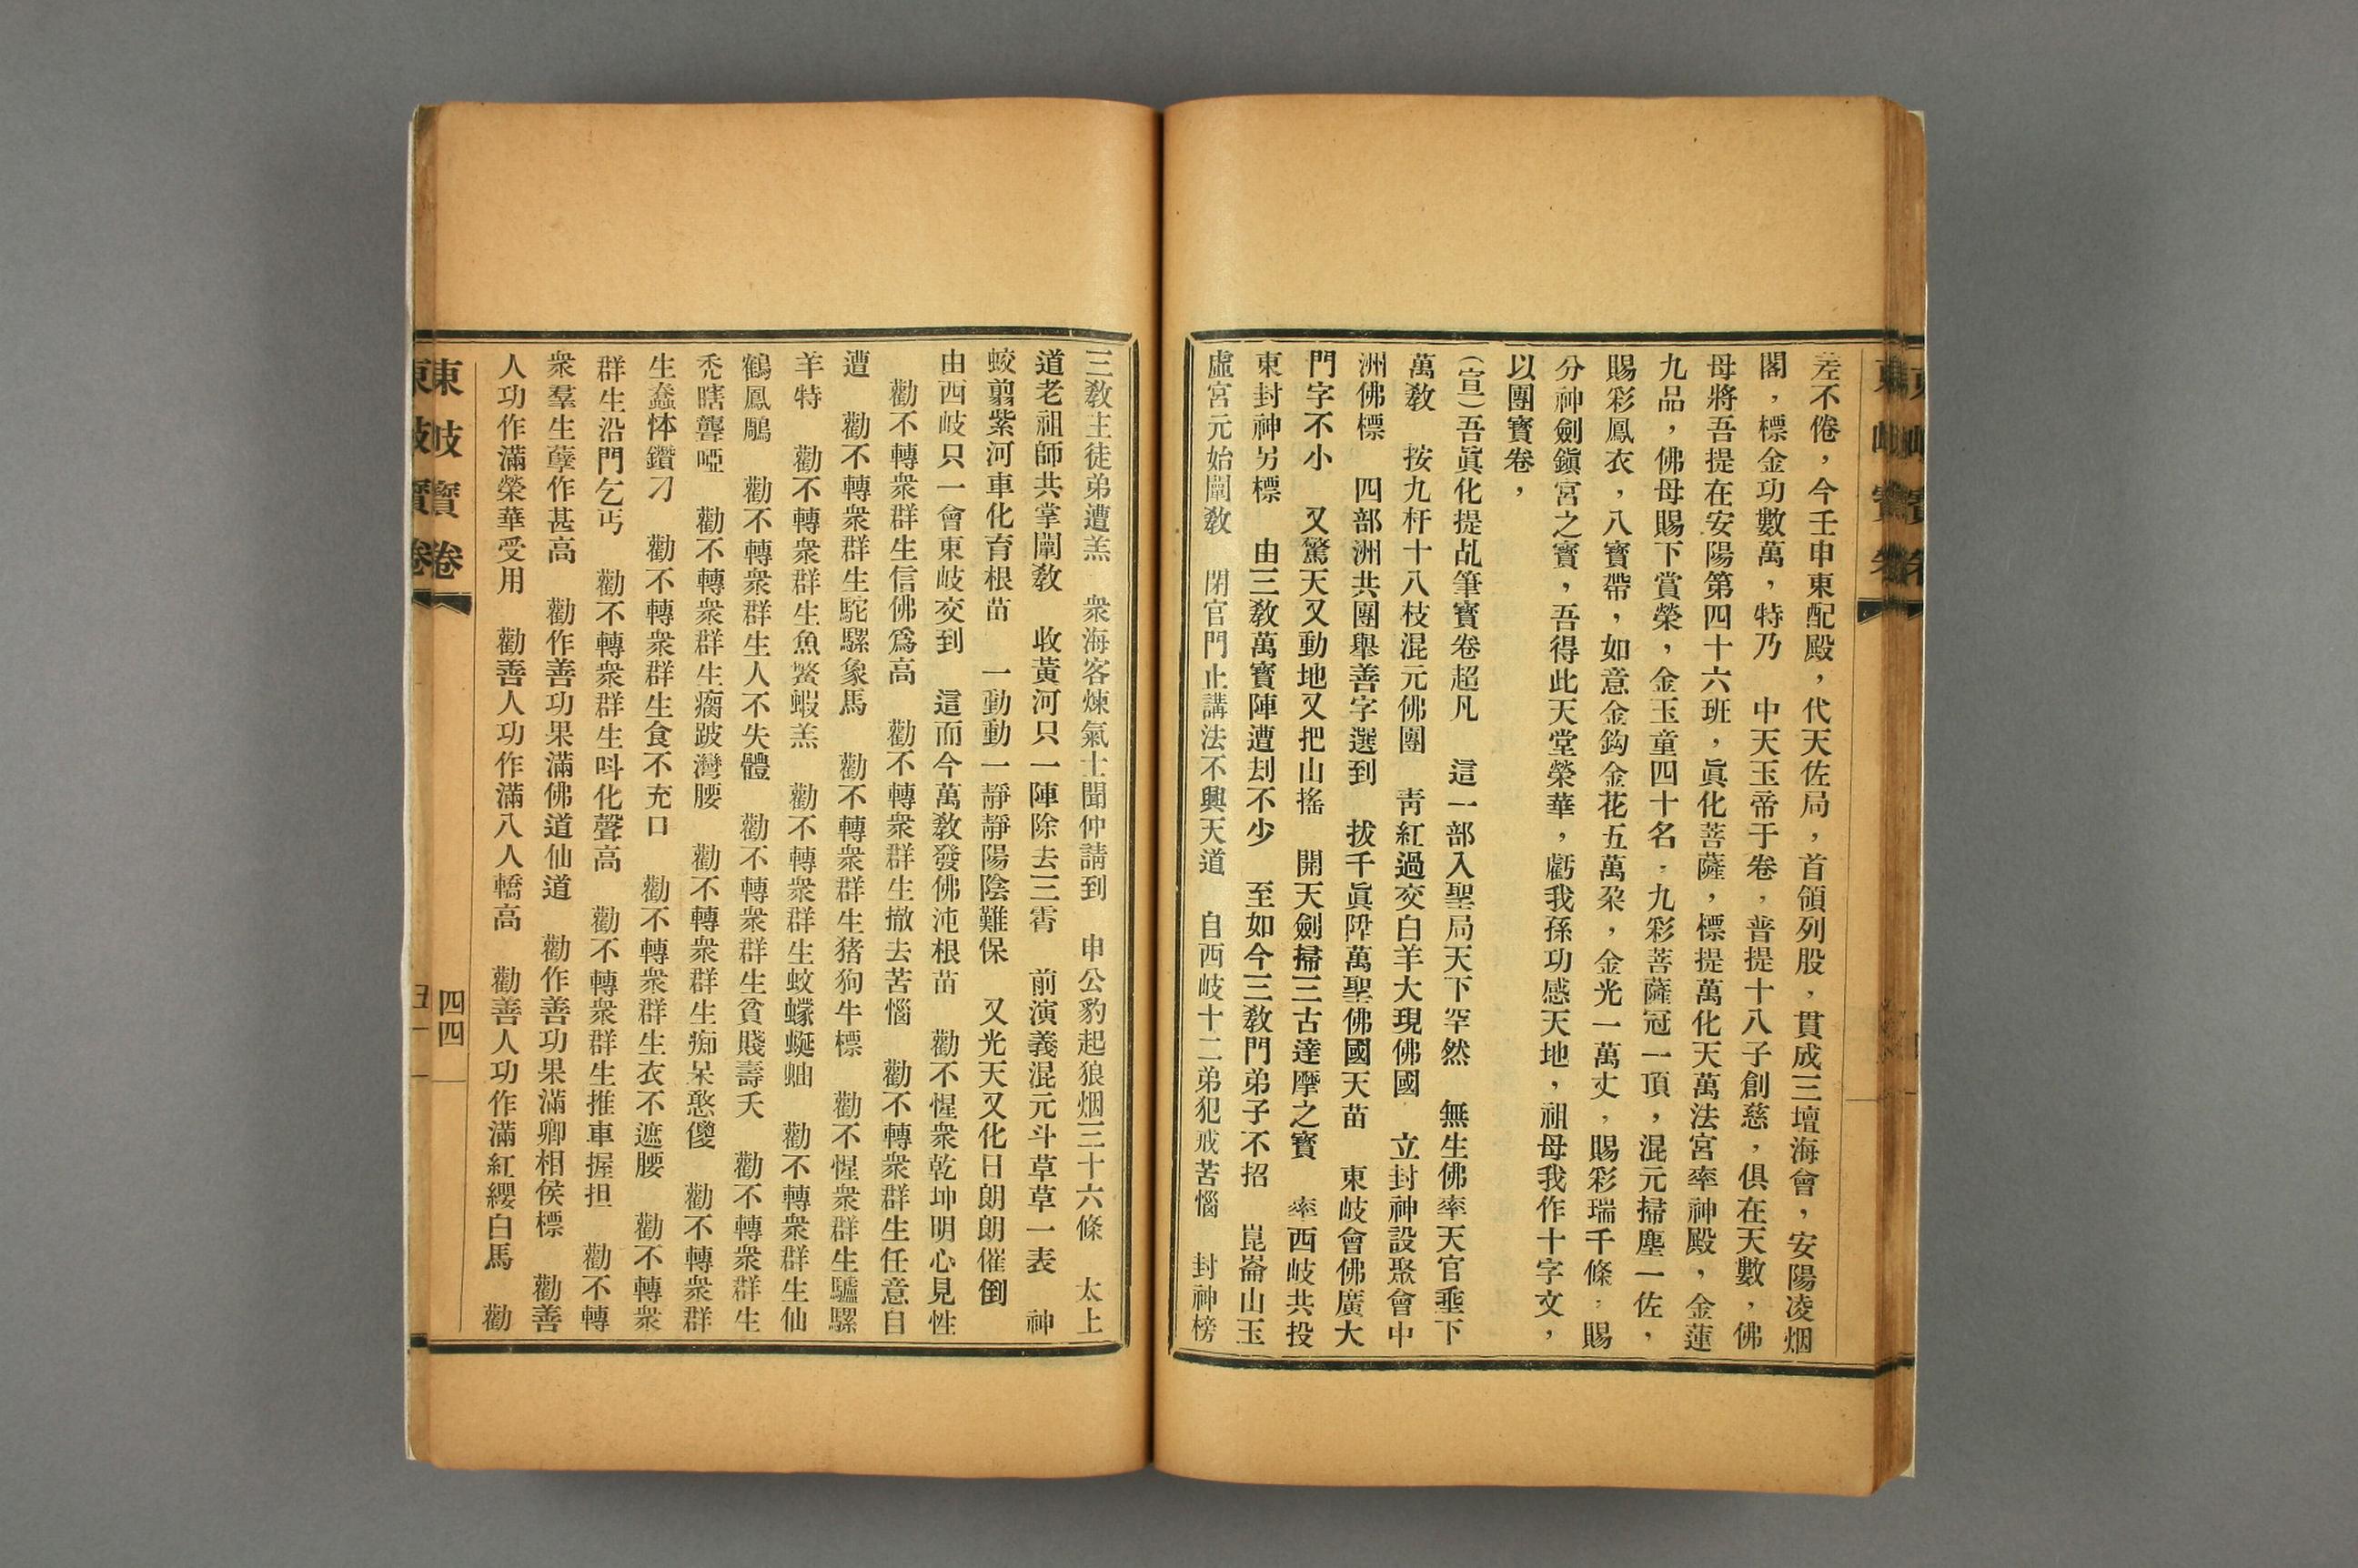 差不倦，今壬申東配殿，代天佐局，首領列股，貫成三壇海會，安陽凌烟
閣，標金功數萬，特乃　中天玉帝于卷，普提十八子創慈，俱在天數，佛
母將吾提在安陽第四十六班，眞化菩薩，標提萬化天萬法宮率神殿，金蓮
九品，佛母賜下賞榮，金玉童四十名，九彩菩薩冠一頂，混元掃塵一佐，
賜彩鳳衣，八寶帶，如意金鈎金花五萬朶，金光一萬丈，賜彩瑞千條，賜
分神劍鎭宮之寶，吾得此天堂榮華，虧我孫功感天地，祖母我作十字文，
以團寳卷，
（宣）吾眞化提乩筆寳卷超凡　這一部入聖局天下罕然　無生佛率天官垂下
萬敎　按九杆十八枝混元佛團　靑紅過交白羊大現佛國　立封神設聚會中
洲佛標　四部洲共團舉善字選到　拔千眞陞萬聖佛國天苗　東岐會佛廣大
門字不小　又驚天又動地又把山搖　開天劍掃三古達摩之寳　率西岐共投
東封神另標　由三敎萬寳陣遭刦不少　至如今三敎門弟子不招　崑崙山玉
虛宮元始闡敎　閉官門止講法不興天道　自西岐十二弟犯戒苦惱　封神榜
三敎主徒弟遭羔　衆海客煉氣士聞仲請到　申公豹起狼烟三十六條　太上
道老祖師共掌闡敎　收黃河只一陣除去三霄　前演義混元斗草草一表　神
蛟翦紫河車化育根苗　一動動一靜靜陽陰難保　又光天又化日朗朗催倒
由西岐只一會東岐交到　這而今萬敎發佛沌根苗　勸不惺衆乾坤明心見性
　勸不轉衆群生信佛爲高　勸不轉衆群生撤去苦惱　勸不轉衆群生任意自
遭　勸不轉衆群生駝騾象馬　勸不轉衆群生猪狗牛標　勸不惺衆群生驢騾
羊特　勸不轉衆群生魚鱉蝦羔　勸不轉衆群生蚊蠓蜒蚰　勸不轉衆群生仙
鶴鳳鵰　勸不轉衆群生人不失體　勸不轉衆群生貧賤壽夭　勸不轉衆群生
禿瞎聾啞　勸不轉衆群生瘸跛灣腰　勸不轉衆群生痴呆憨儍　勸不轉衆群
生蠢体鑽刁　勸不轉衆群生食不充口　勸不轉衆群生衣不遮腰　勸不轉衆
群生沿門乞丐　勸不轉衆群生呌化聲高　勸不轉衆群生推車握担　勸不轉
衆羣生孽作甚高　勸作善功果滿佛道仙道　勸作善功果滿卿相侯標　勸善
人功作滿榮華受用　勸善人功作滿八人轎高　勸善人功作滿紅纓白馬　勸
東岐寳卷
四四